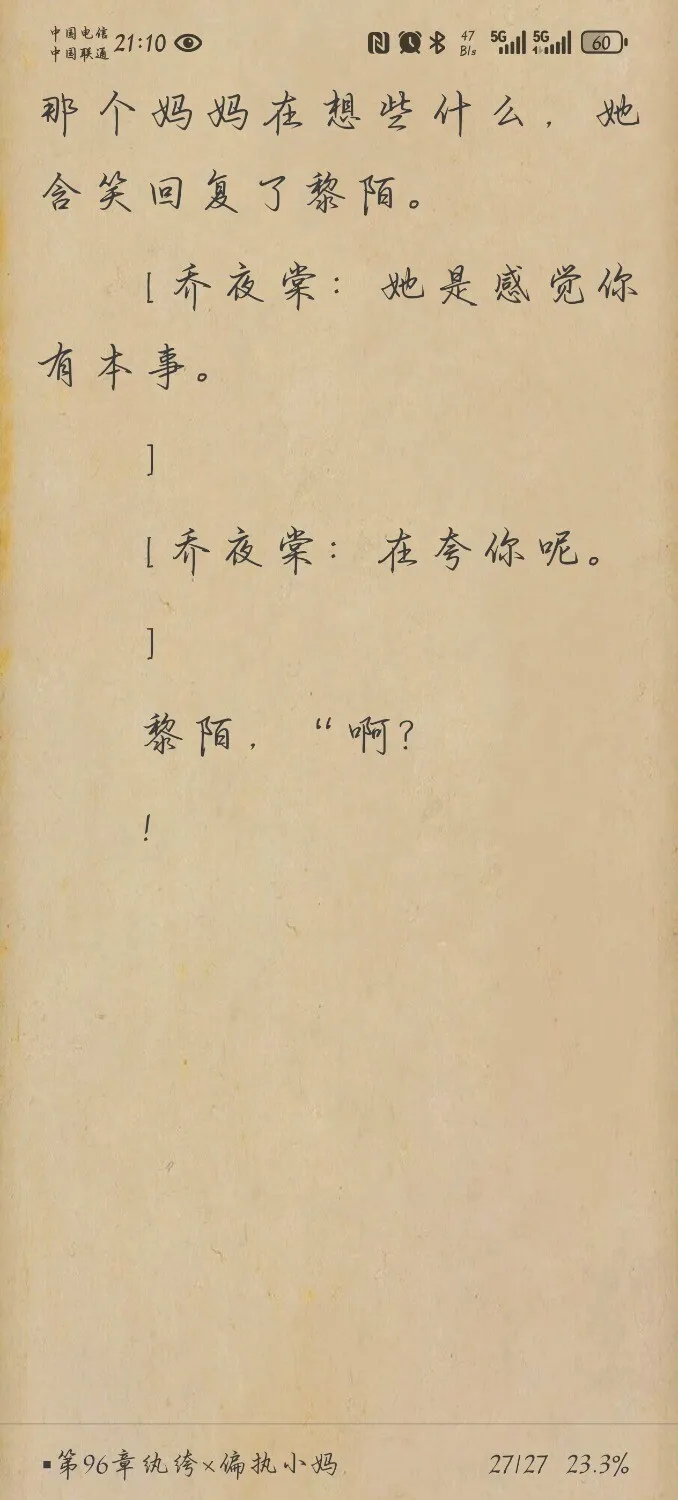 中国电信
中国联通 21:10 47 B/s 5G 5G 60
那个妈妈在想些什么，她
含笑回复了黎陌。
[乔夜棠：她是感觉你
有本事。
]
[乔夜棠：在夸你呢。
]
黎陌，“啊？
！
第96章纨绔×偏执小妈 27/27 23.3%